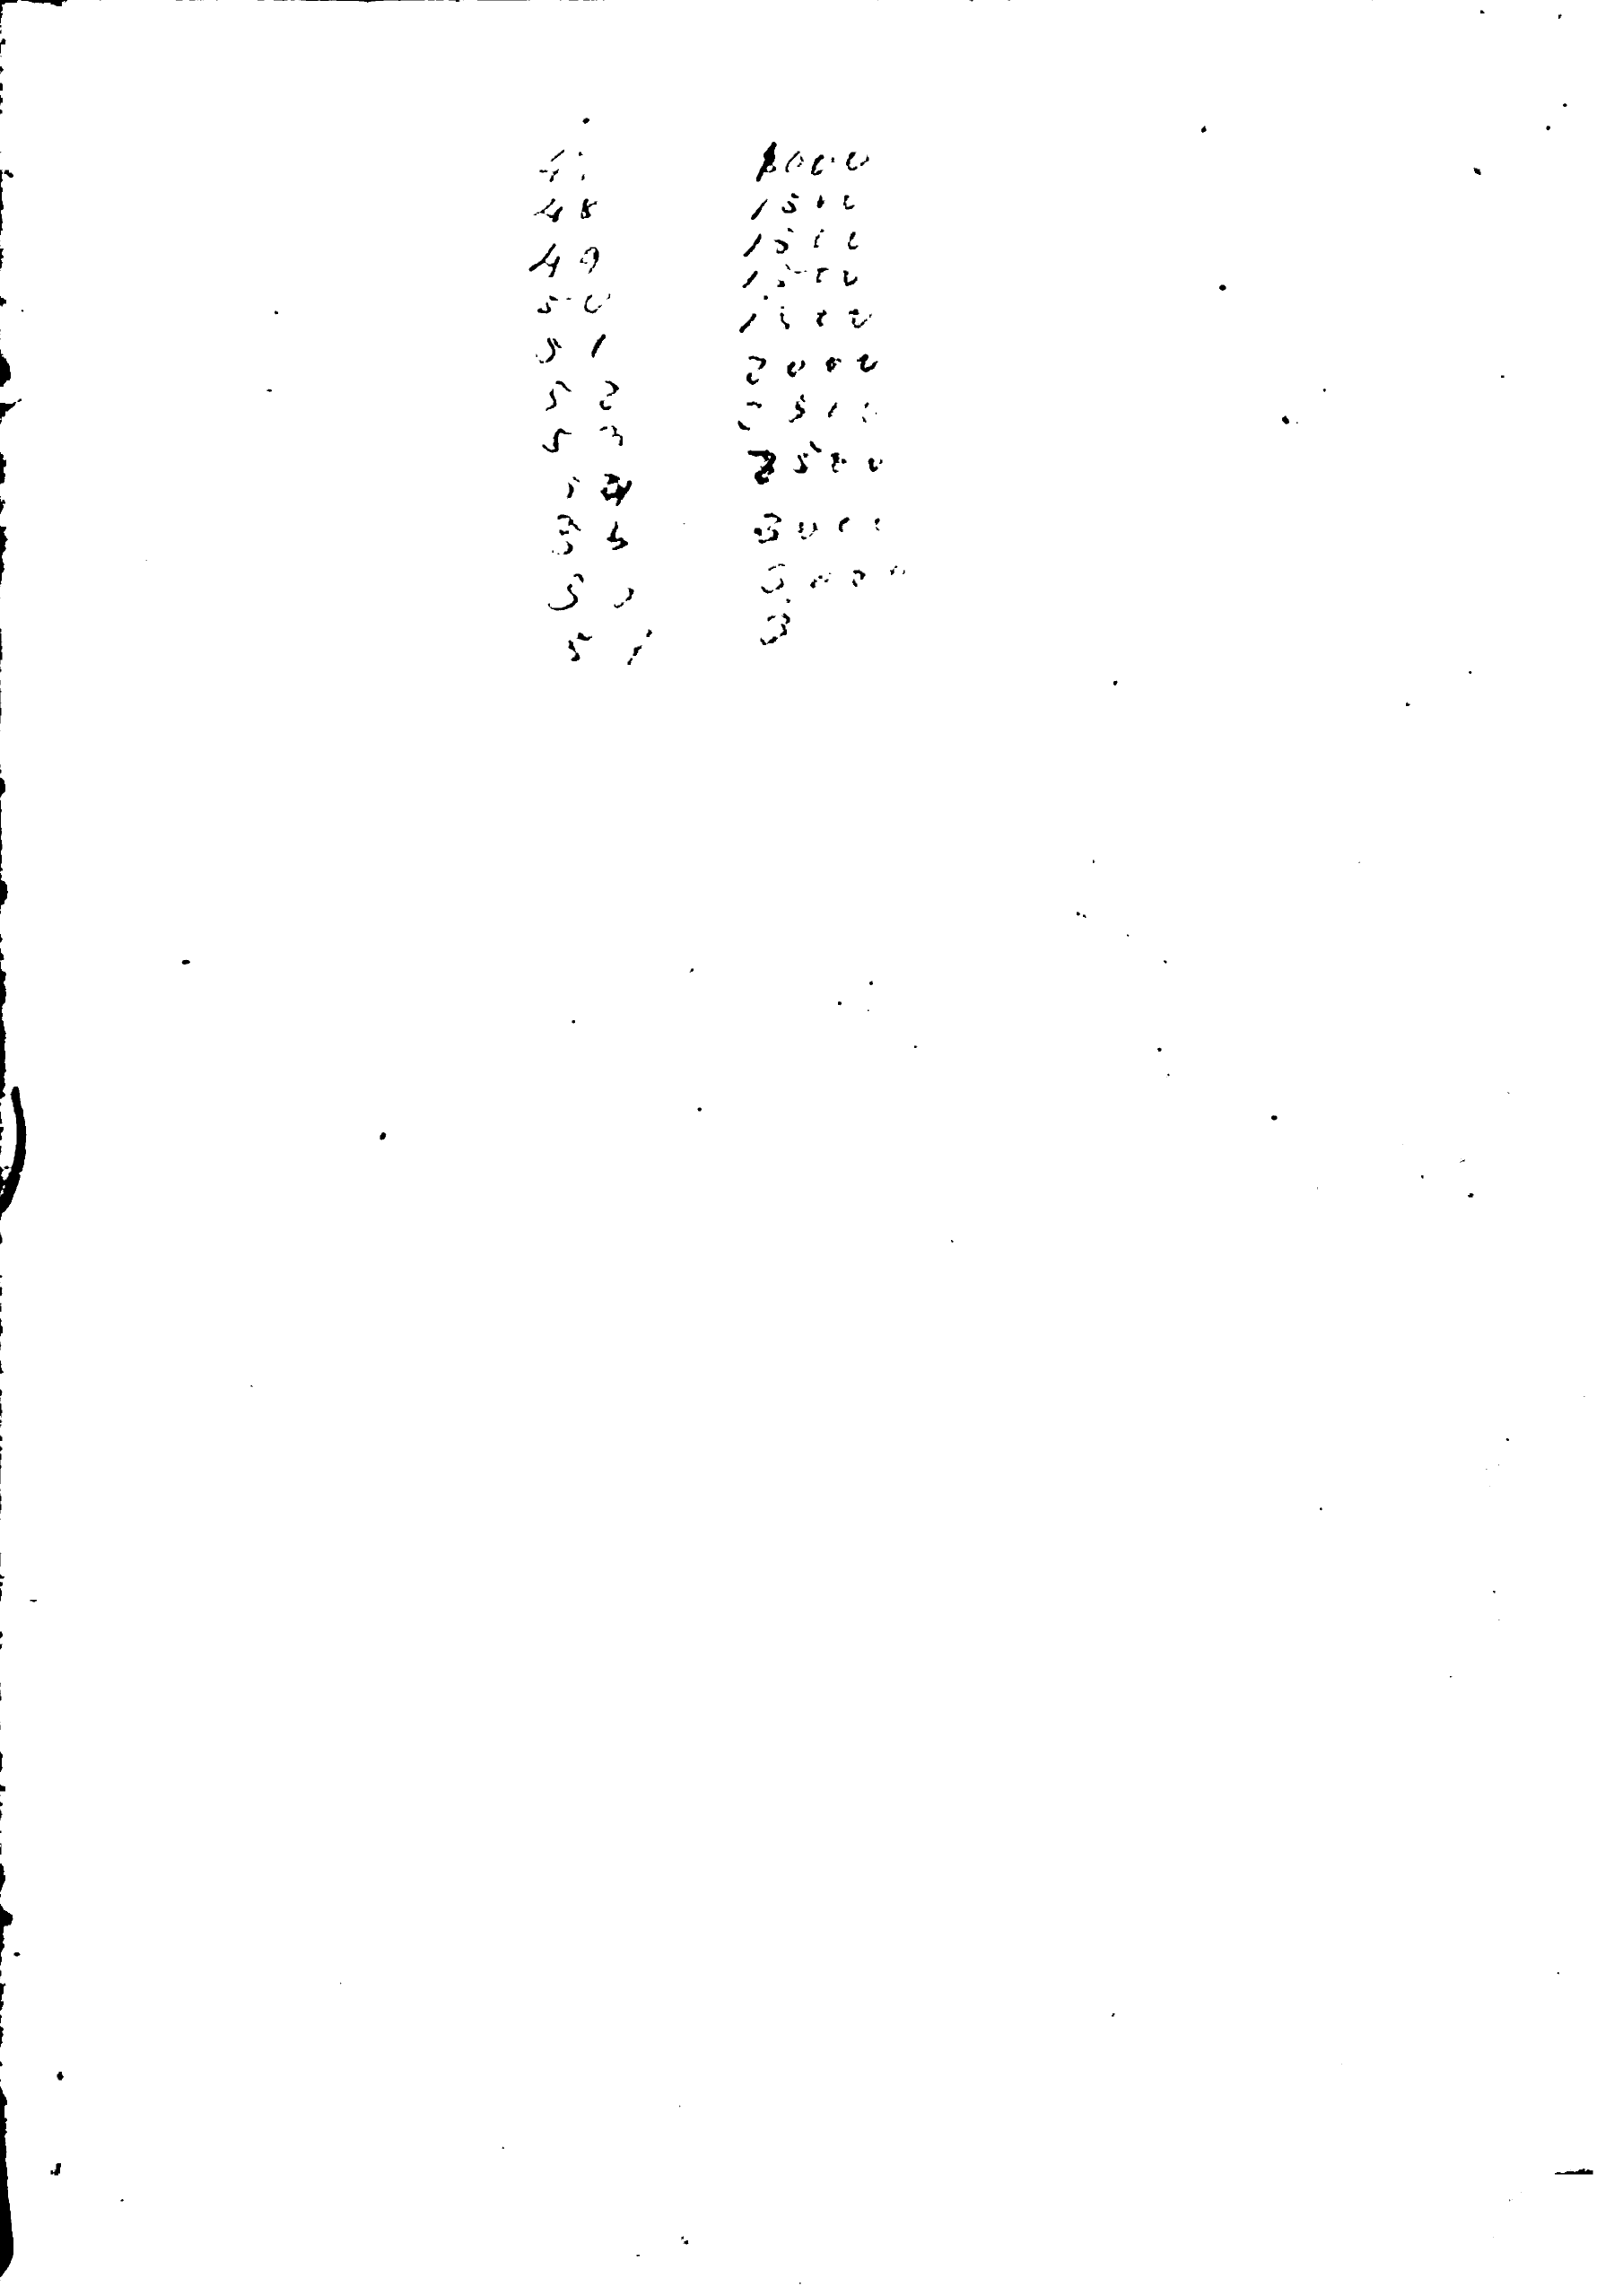 48 1500
49 1500
50 1500
51 1500
52 2000
53 2500
54 2500
55 3000
5 3000
5 3